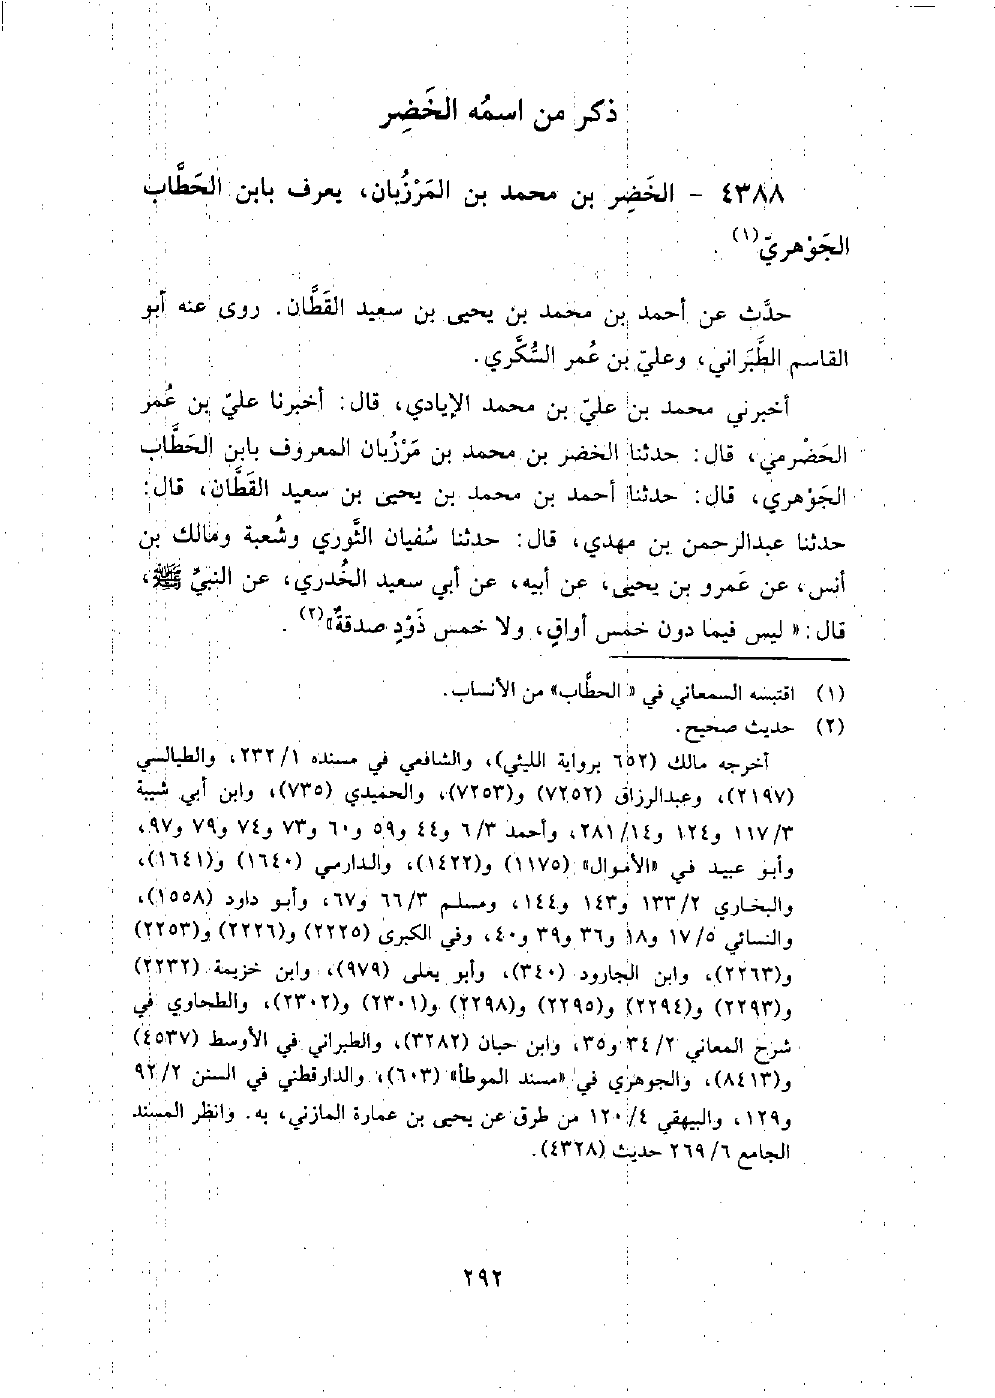 ذكر من اسمُه الخَضِر
٤٣٨٨ - الخَضِر بن محمد بن المَرْزُبان، يعرف بابن الحَطَّاب
الجَوْهريّ(١) .
حدَّث عن أحمد بن محمد بن يحيى بن سعيد القَطَّان. روى عنه أبو
القاسم الطَّبَراني، وعليّ بن عُمر السُّكَّري.
أخبرني محمد بن عليّ بن محمد الإيادي، قال: أخبرنا عليّ بن عُمر
الحَضْرمي، قال: حدثنا الخضر بن محمد بن مَرْزُبان المعروف بابن الحَطَّاب
الجَوْهري، قال: حدثنا أحمد بن محمد بن يحيى بن سعيد القَطَّان، قال:
حدثنا عبدالرحمن بن مهدي، قال: حدثنا سُفيان الثَّوري وشُعبة ومالك بن
أنس، عن عَمرو بن يحيى، عن أبيه، عن أبي سعيد الخُدري، عن النبيِّ ﷺ،
قال: « ليس فيما دون خمس أواقٍ، ولا خمس ذَوْدٍ صدقةٌ»(٢) .
(١) اقتبسه السمعاني في « الحطَّاب» من الأنساب.
(٢) حديث صحيح.
أخرجه مالك (٦٥٢ برواية الليثي)، والشافعي في مسنده ١/ ٢٣٢، والطيالسي
(٢١٩٧)، وعبدالرزاق (٧٢٥٢) و(٧٢٥٣)، والحميدي (٧٣٥)، وابن أبي شيبة
٣/ ١١٧ و١٢٤ و١٤/ ٢٨١، وأحمد ٣/ ٦ و٤٤ و٥٩ و٦٠ و٧٣ و٧٤ و٧٩ و٩٧،
وأبو عبيد في «الأموال» (١١٧٥) و(١٤٢٢)، والدارمي (١٦٤٠) و(١٦٤١)،
والبخاري ٢/ ١٣٣ و١٤٣ و١٤٤، ومسلم ٣/ ٦٦ و٦٧، وأبو داود (١٥٥٨)،
والنسائي ٥/ ١٧ و١٨ و٣٦ و٣٩ و٤٠، وفي الكبرى (٢٢٢٥) و(٢٢٢٦) و(٢٢٥٣)
و(٢٢٦٣)، وابن الجارود (٣٤٠)، وأبو يعلى (٩٧٩)، وابن خزيمة (٢٢٣٢)
و(٢٢٩٣) و(٢٢٩٤) و(٢٢٩٥) و(٢٢٩٨) و(٢٣٠١) و(٢٣٠٢)، والطحاوي في
شرح المعاني ٢/ ٣٤ و٣٥، وابن حبان (٣٢٨٢)، والطبراني في الأوسط (٤٥٣٧)
و(٨٤١٣)، والجوهري في «مسند الموطأ» (٦٠٣)، والدارقطني في السنن ٢/ ٩٢
و١٢٩، والبيهقي ٤/ ١٢٠ من طرق عن يحيى بن عمارة المازني، به. وانظر المسند
الجامع ٦/ ٢٦٩ حديث (٤٣٢٨).
٢٩٢